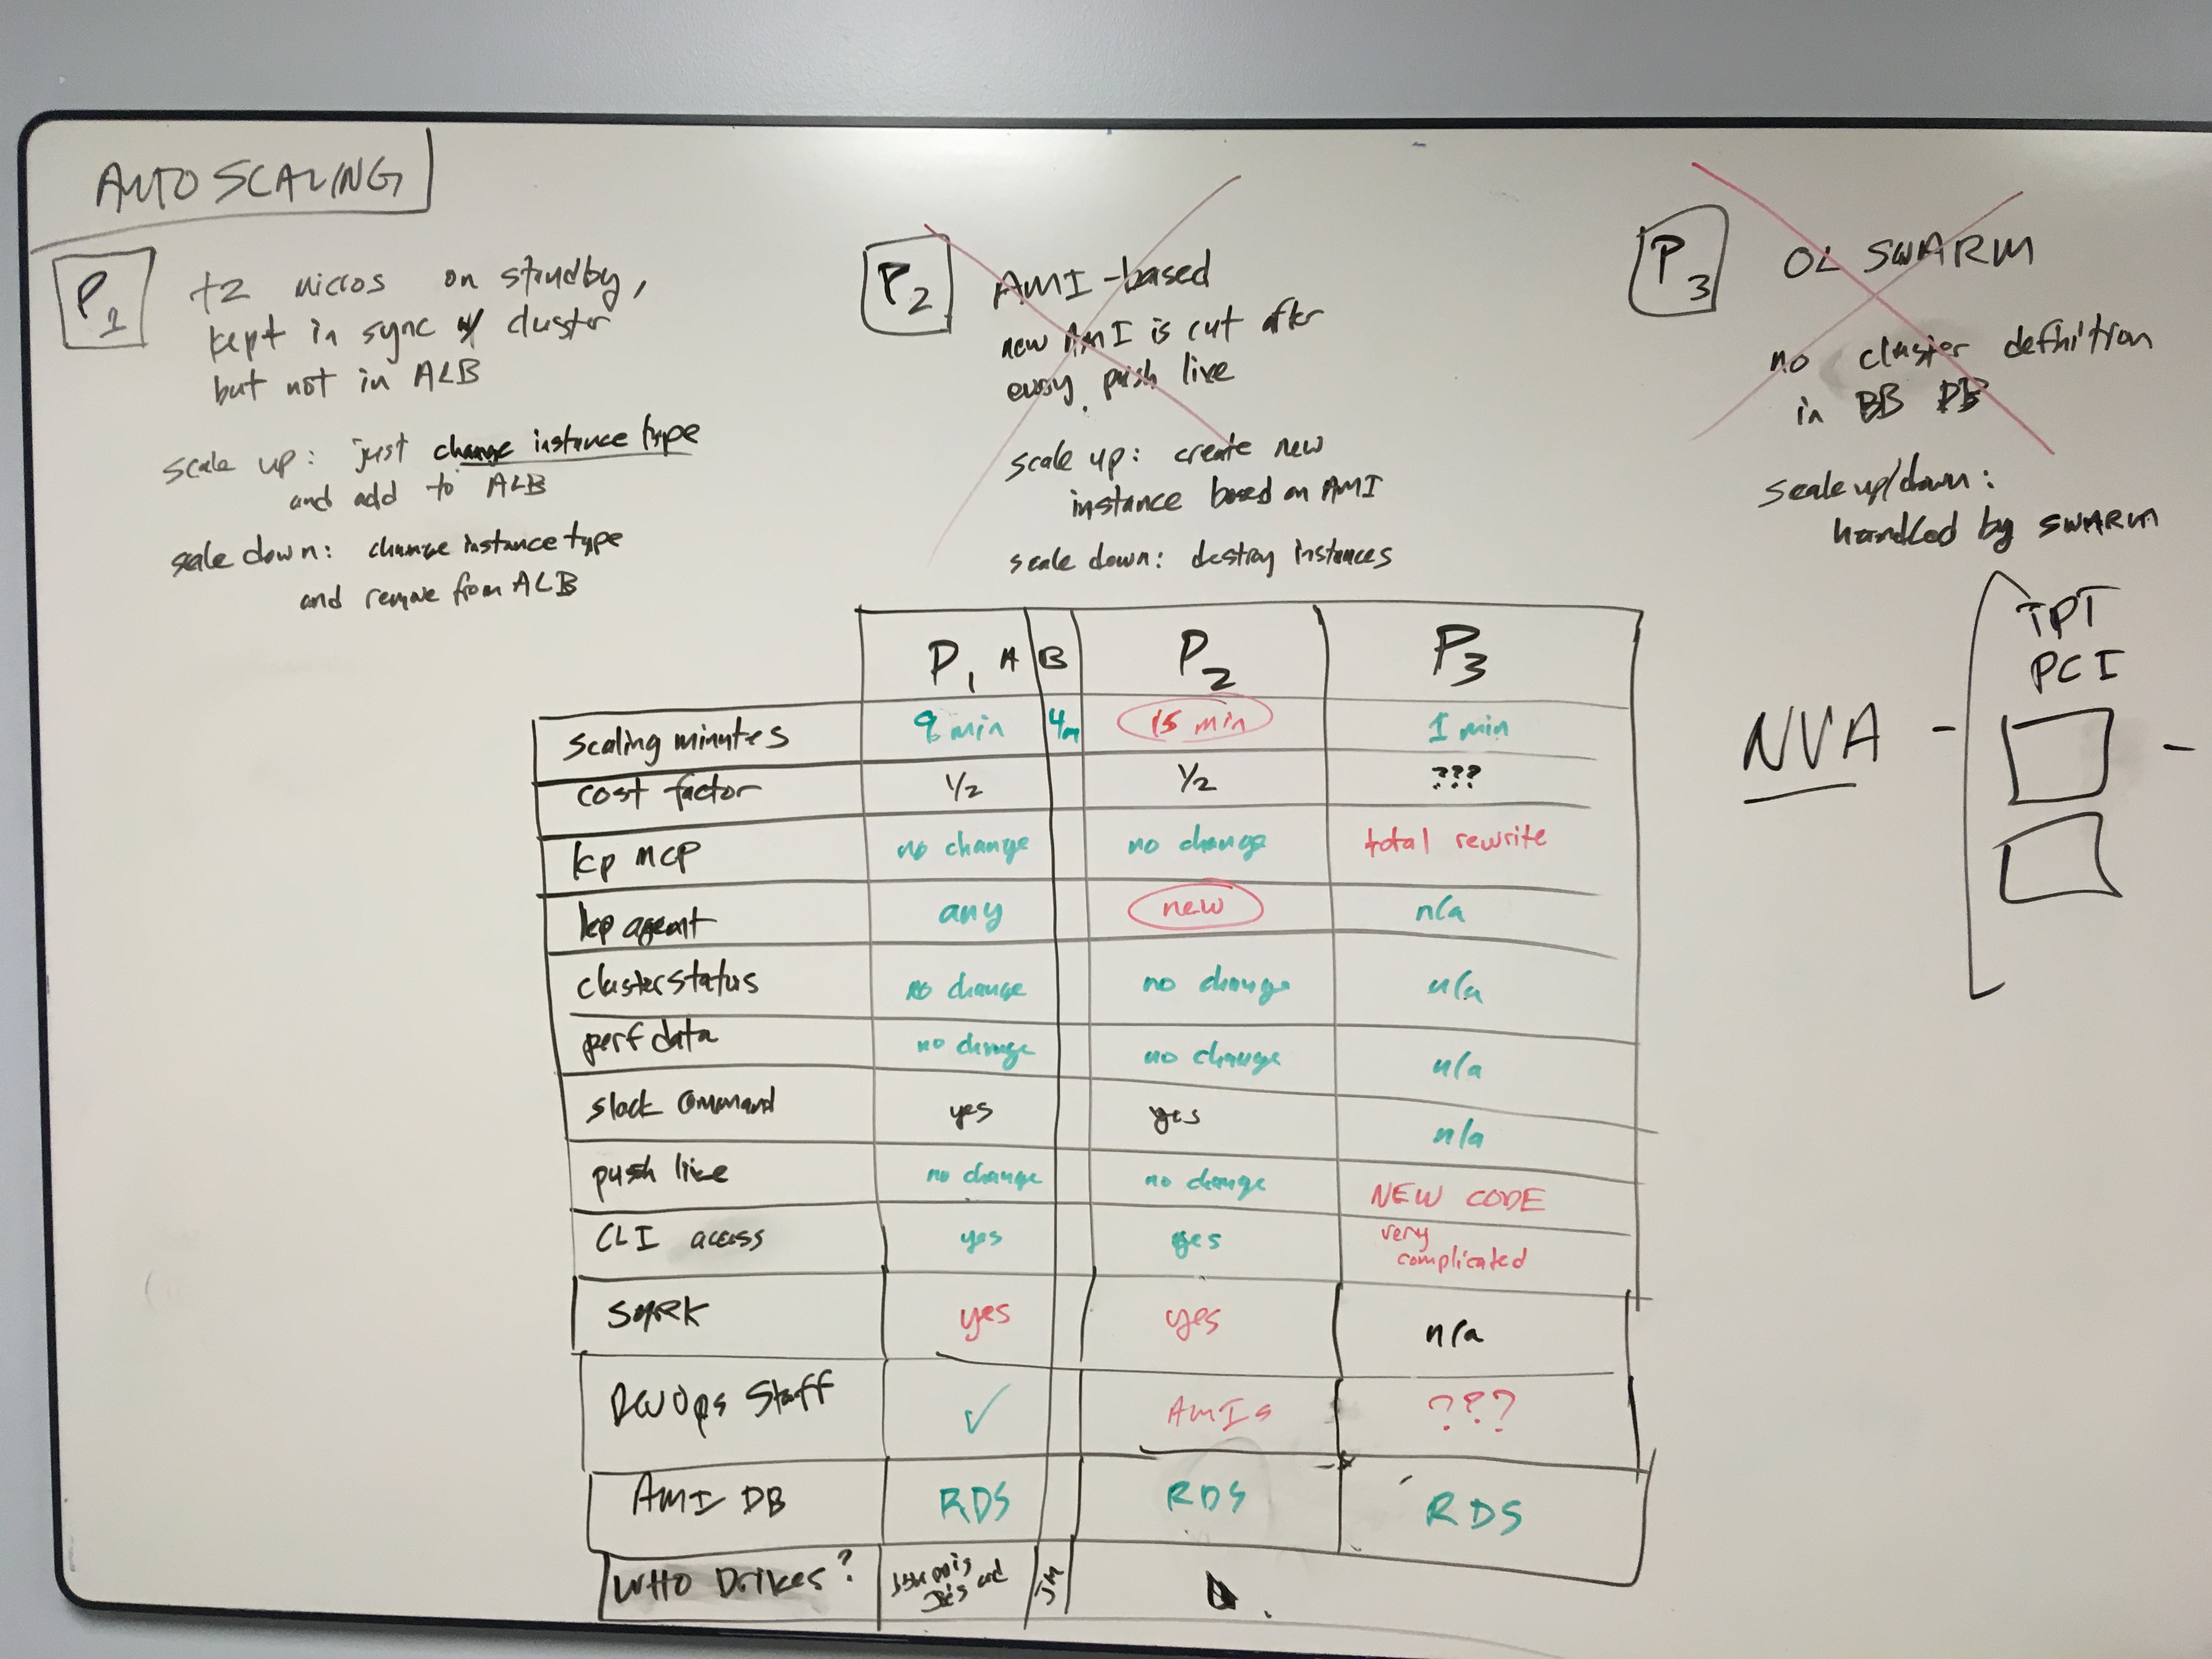 AUTO SCALING
P1
t2 micros on standby,
kept in sync w/ cluster
but not in ALB
scale up: just change instance type
and add to ALB
scale down: change instance type
and remove from ALB
P2
AMI-based
new AMI is cut after
every push live
scale up: create new
instance based on AMI
scale down: destroy instances
P3
SWARM
no cluster definition
in BB DB
scale up/down:
handled by SWARM
NVA -
TPT
PCI
-
P1 A B P2 P3
scaling minutes 9 min 4m 15 min 1 min
cost factor 1/2 1/2 ???
kp mcp no change no change total rewrite
kp agent any new n/a
cluster status no change no change n/a
perf data no change no change n/a
slack command yes yes n/a
push live no change no change NEW CODE
CLI access yes yes very
complicated
yes yes n/a
DevOps Staff ✓ AMIs ???
AMI DB RDS RDS RDS
WHO Drives?